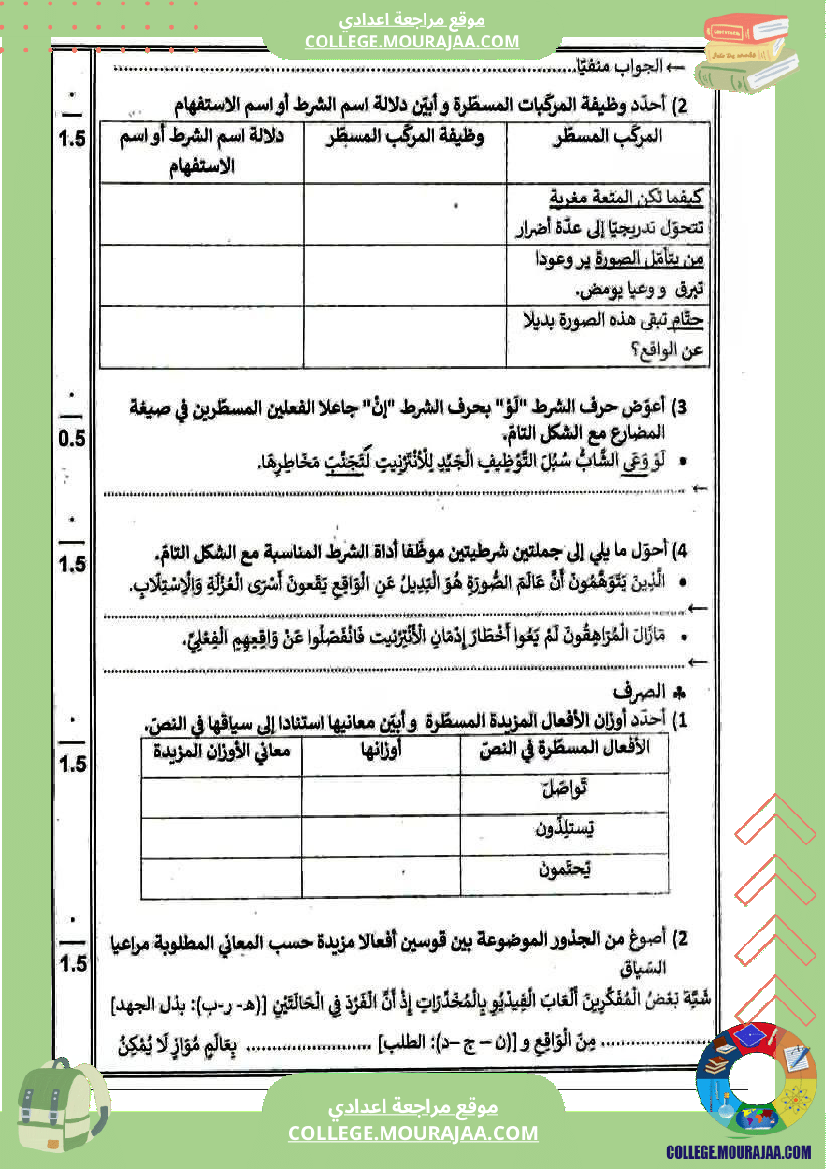 موقع مراجعة اعدادي
COLLEGE.MOURAJAA.COM
← الجواب منفيّا
2) أحدّد وظيفة المركّبات المسطّرة و أبيّن دلالة اسم الشرط أو اسم الاستفهام
1.5
المركّب المسطّر
وظيفة المركّب المسطّر
دلالة اسم الشرط أو اسم الاستفهام
كيفما تكن المتعة مغرية
تتحوّل تدريجيّا إلى عدّة أضرار
من يتأمّل الصورة ير وعودا
تبرق و وعيا يومض.
حتّام تبقى هذه الصورة بديلا
عن الواقع؟
3) أعوّض حرف الشرط "لَوْ" بحرف الشرط "إنْ" جاعلا الفعلين المسطّرين في صيغة
المضارع مع الشكل التامّ.
0.5
• لَوْ وَعَى الشَّابُّ سُبُلَ التَّوْظِيفِ الْجَيِّدِ لِلْأَنْتَرْنِيتِ لَتَجَنَّبَ مَخَاطِرِهَا.
←
4) أحوّل ما يلي إلى جملتين شرطيتين موظّفا أداة الشرط المناسبة مع الشكل التامّ.
1.5
• الَّذِينَ يَتَوَهَّمُونَ أَنَّ عَالَمَ الصُّورَةِ هُوَ الْبَدِيلُ عَنِ الْوَاقِعِ يَقَعونَ أَسْرَى الْعُزْلَةِ وَالْاِسْتِلَابِ.
←
• مَازَالَ الْمُرَاهِقُونَ لَمْ يَعُوا أَخْطَارَ إِدْمَانِ الْأَنْتِرْنيت فَانْفَصَلُوا عَنْ وَاقِعِهِمِ الْفِعْلِيِّ.
←
♣ الصرف
1) أحدّد أوزان الأفعال المزيدة المسطّرة و أبيّن معانيها استنادا إلى سياقها في النصّ.
1.5
الأفعال المسطّرة في النصّ
أوزانها
معاني الأوزان المزيدة
تَواصَلَ
يَستلِذّون
يَحتَمونَ
2) أصوغ من الجذور الموضوعة بين قوسين أفعالا مزيدة حسب المعاني المطلوبة مراعيا
السّياق
1.5
شَبَّهَ بَعْضُ الْمُفَكِّرِينَ أَلْعَابَ الْفِيدْيُو بِالْمُخَدَّرَاتِ إِذْ أَنَّ الْفَرْدَ فِي الْحَالَتَيْنِ [(هـ- ر-ب): بذل الجهد]
.................... مِنَ الْوَاقِعِ و [(ن – ج –د): الطلب] ........................ بِعَالَمٍ مُوَازٍ لَا يُمْكِنُ
موقع مراجعة اعدادي
COLLEGE.MOURAJAA.COM
COLLEGE.MOURAJAA.COM